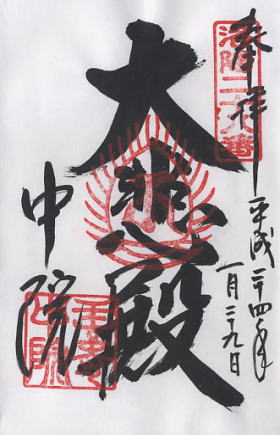 奉拝
平成二十四年
一月二十九日
大悲殿
中院